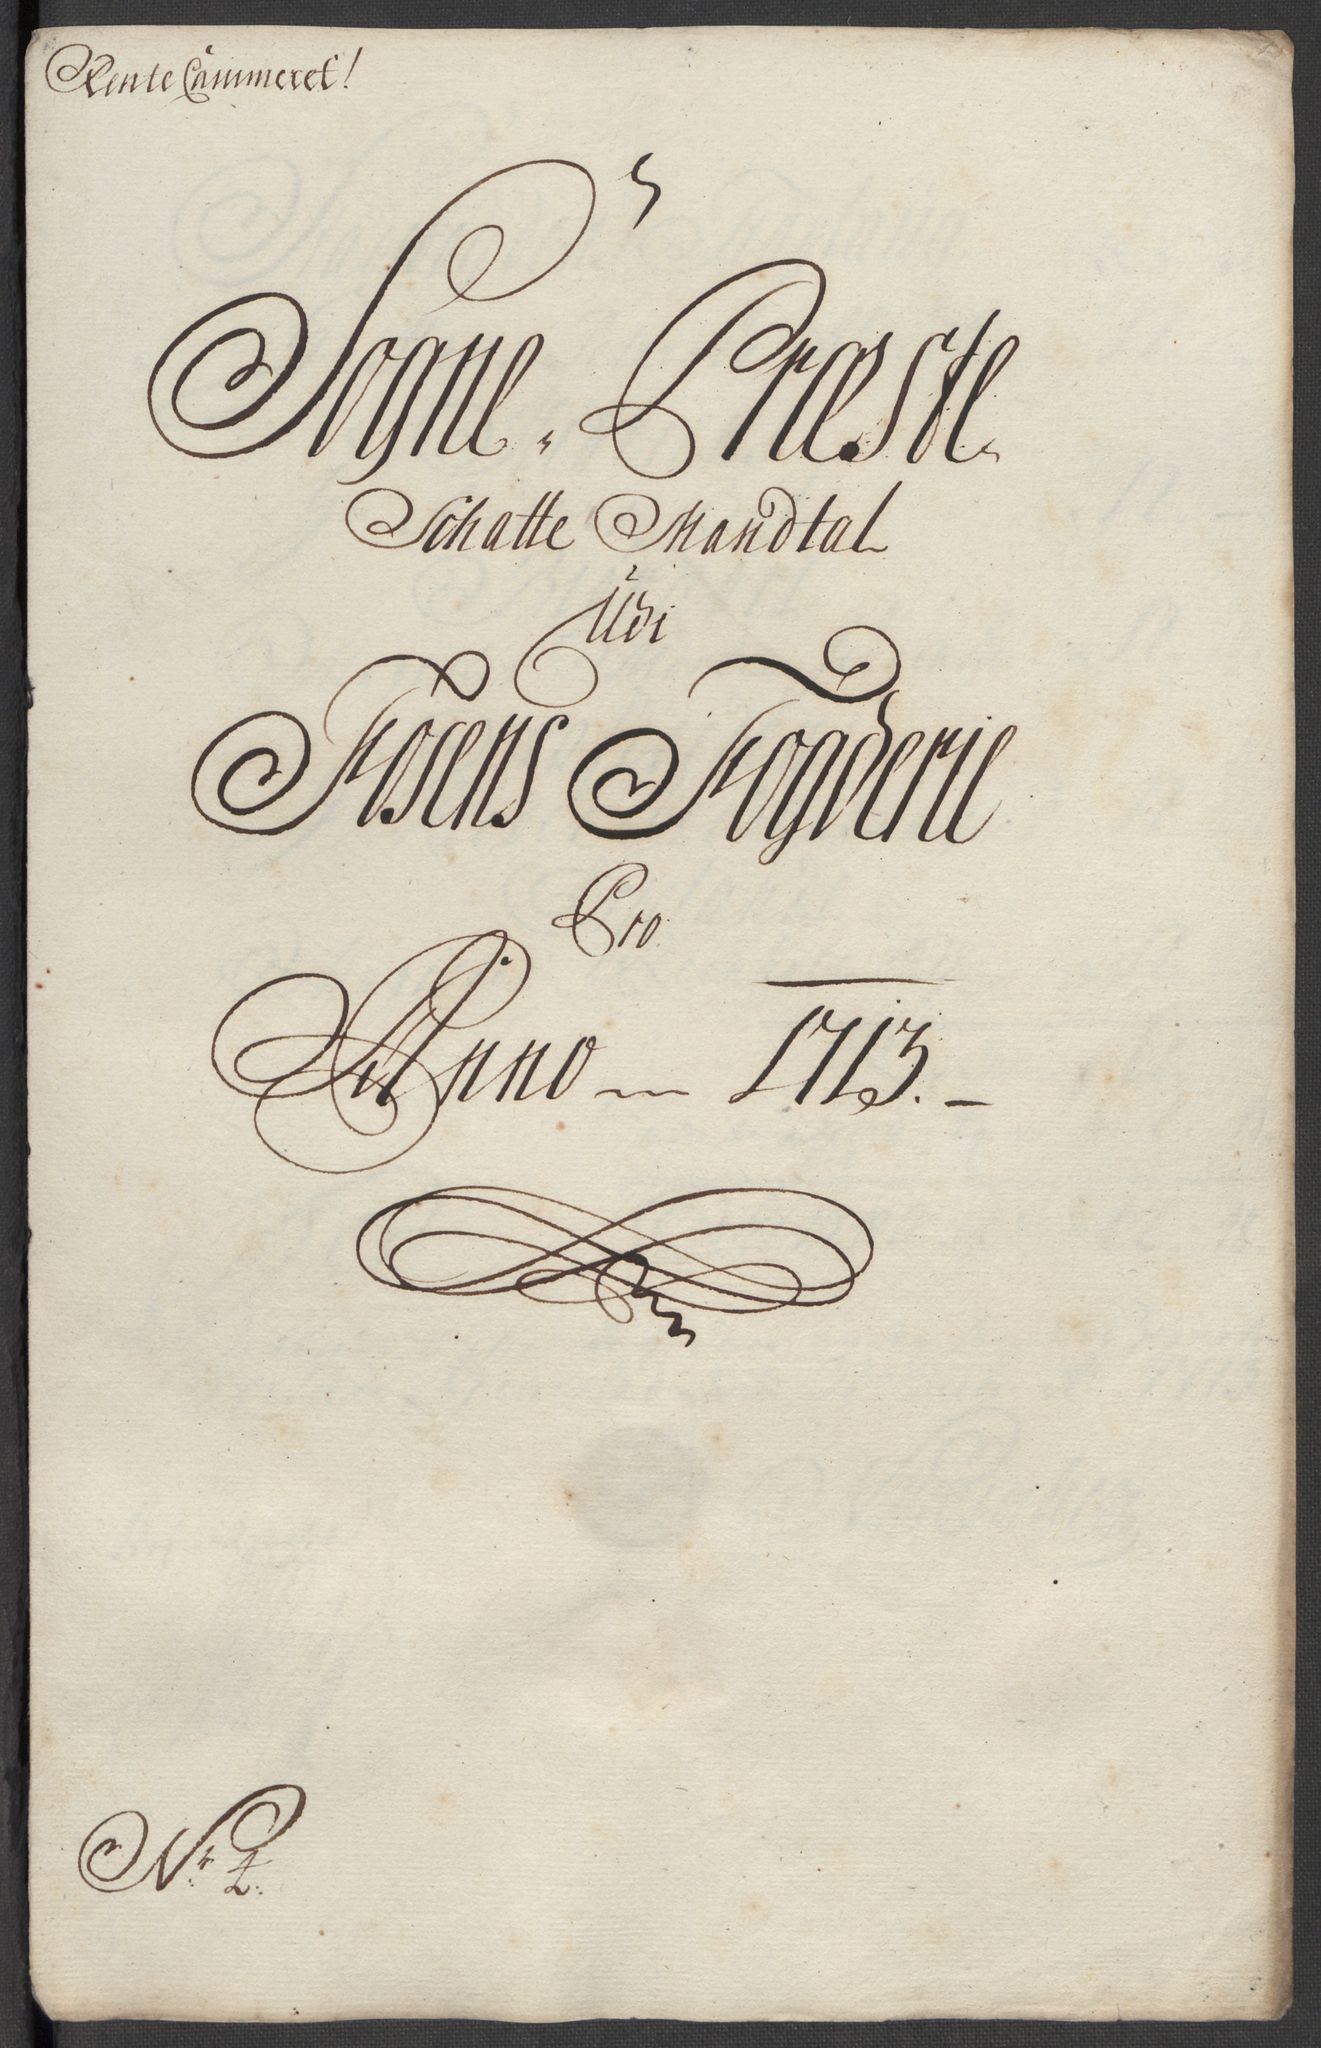 Rente Cammeret!
Sogne-Præste
Schatte Mandtal
Udi
Fosens Fogderie
Pro
Anno 1713.
No 2.